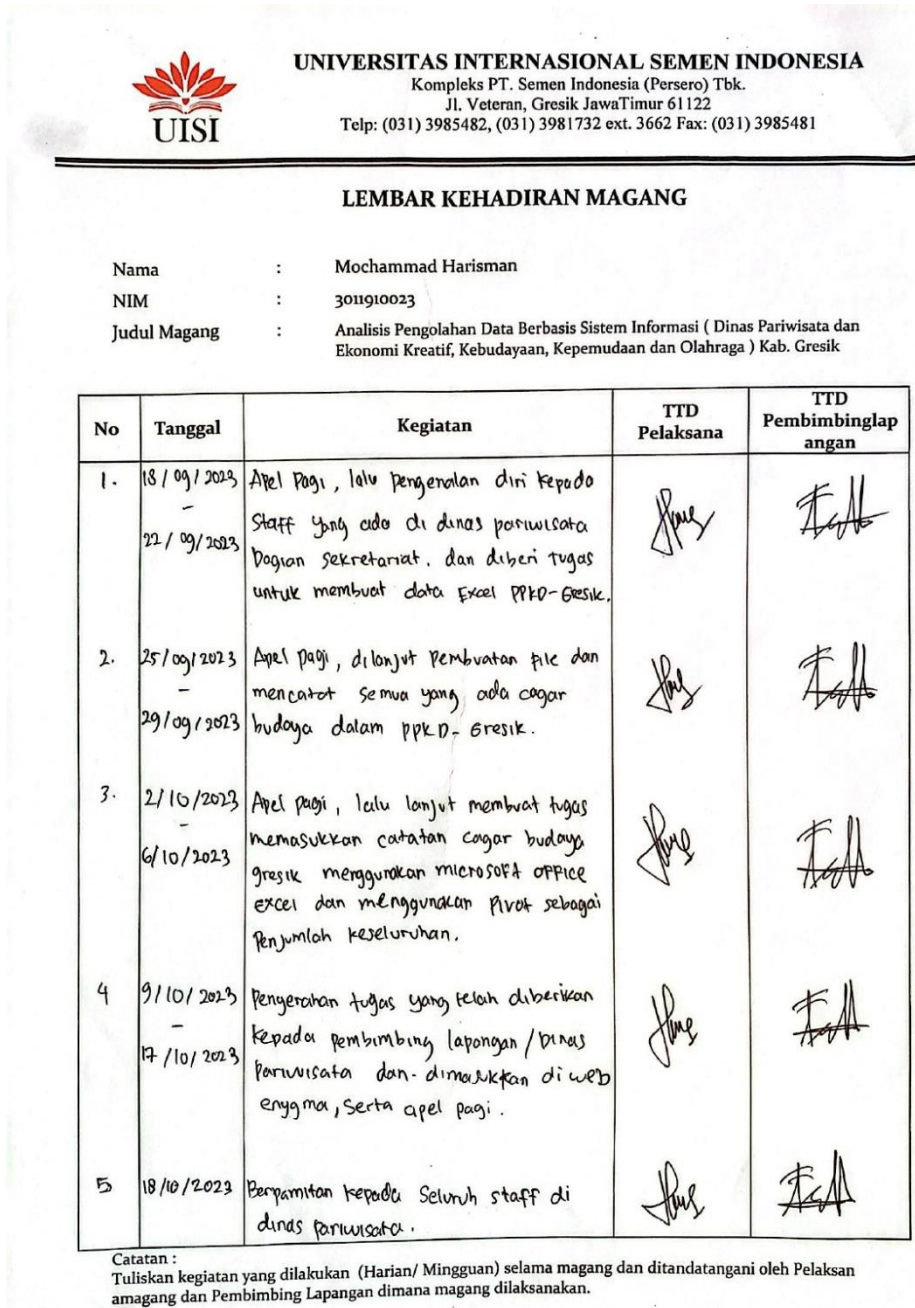 UNIVERSITAS INTERNASIONAL SEMEN INDONESIA
Kompleks PT. Semen Indonesia (Persero) Tbk.
Jl. Veteran, Gresik JawaTimur 61122
Telp: (031) 3985482, (031) 3981732 ext. 3662 Fax: (031) 3985481
UISI
LEMBAR KEHADIRAN MAGANG
Nama : Mochammad Harisman
NIM : 3011910023
Judul Magang : Analisis Pengolahan Data Berbasis Sistem Informasi ( Dinas Pariwisata dan
Ekonomi Kreatif, Kebudayaan, Kepemudaan dan Olahraga ) Kab. Gresik
No Tanggal Kegiatan TTD Pelaksana TTD Pembimbinglap angan
1. 18/09/2023 Apel Pagi, lalu pengenalan diri kepada
- Staff yang ada di dinas pariwisata
22/09/2023 bagian sekretariat. dan diberi tugas
untuk membuat data Excel PPKD-Gresik.
2. 25/09/2023 Apel pagi, dilanjut Pembuatan file dan
- mencatat semua yang ada cagar
29/09/2023 budaya dalam PPKD-Gresik.
3. 2/10/2023 Apel pagi, lalu lanjut membuat tugas
- memasukkan catatan cagar budaya
6/10/2023 gresik menggunakan microsoft office
excel dan menggunakan Pivot sebagai
Penjumlah keseluruhan.
4 9/10/2023 Pengerahan tugas yang telah diberikan
- kepada pembimbing lapangan/Dinas
17/10/2023 Pariwisata dan. dimasukkan di web
enygma, Serta apel pagi.
5 18/10/2023 Berpamitan kepada Seluruh staff di
dinas pariwisata.
Catatan :
Tuliskan kegiatan yang dilakukan (Harian/ Mingguan) selama magang dan ditandatangani oleh Pelaksan
amagang dan Pembimbing Lapangan dimana magang dilaksanakan.